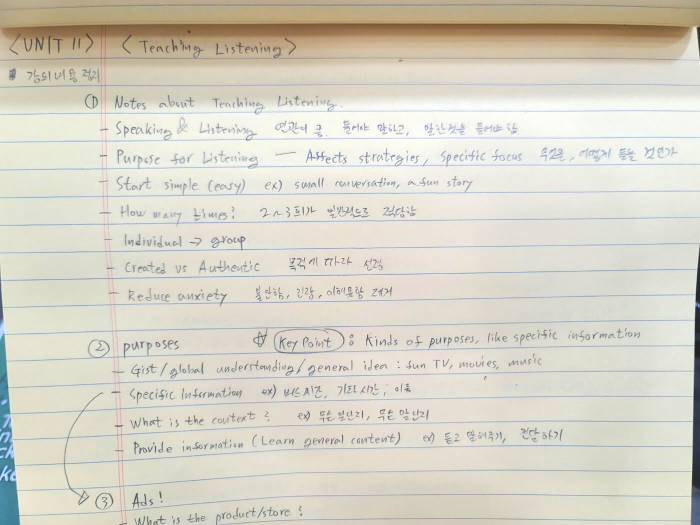 <UNIT 11> <Teaching Listening>
강의내용 정리
① Notes about Teaching Listening.
- Speaking & Listening 연관이 큼. 들어야 말하고, 말한것을 들어야 함
- Purpose for Listening — Affects strategies, specific focus 무엇을, 어떻게 들을 것인가
- Start simple (easy) ex) small conversation, a fun story
- How many times? 2~3회가 일반적으로 적당함
- Individual → group
- Created vs Authentic 목적에 따라 설정
- Reduce anxiety 불안함, 긴장, 이해못함 제거
② purposes ☆ Key Point : Kinds of purposes, like specific information
- Gist/global understanding/general idea : fun TV, movies, music
- Specific Information ex) 버스시간, 기차시간, 이름
- What is the context? ex) 무슨 일인지, 무슨 말인지
- Provide information (Learn general content) ex) 듣고 말해주기, 전달하기
③ Ads!
- What is the product/store?